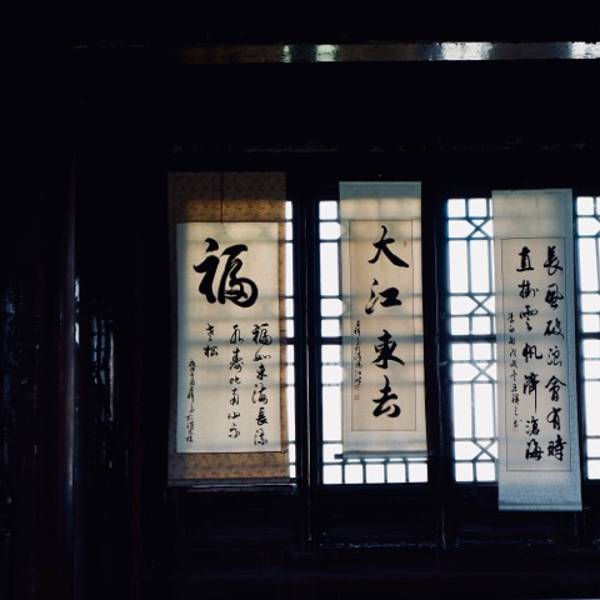 福
福如東海長流
水壽比南山不
老松
大江東去
長風破浪會有時
直掛雲帆濟滄海